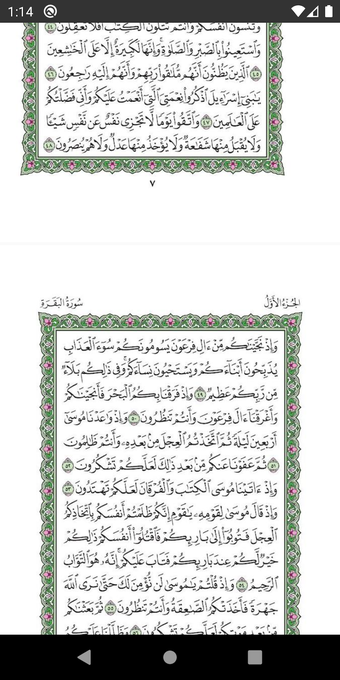 1:14
وَتَنسَوْنَ أَنفُسَكُمْ وَأَنتُمْ تَتْلُونَ الْكِتَٰبَ أَفَلَا تَعْقِلُونَ ٤٤
وَاسْتَعِينُوا بِالصَّبْرِ وَالصَّلَوٰةِ وَإِنَّهَا لَكَبِيرَةٌ إِلَّا عَلَى الْخَٰشِعِينَ
٤٥ الَّذِينَ يَظُنُّونَ أَنَّهُم مُّلَٰقُوا رَبِّهِمْ وَأَنَّهُمْ إِلَيْهِ رَٰجِعُونَ ٤٦
يَٰبَنِي إِسْرَٰٓءِيلَ اذْكُرُوا نِعْمَتِيَ الَّتِي أَنْعَمْتُ عَلَيْكُمْ وَأَنِّي فَضَّلْتُكُمْ
عَلَى الْعَٰلَمِينَ ٤٧ وَاتَّقُوا يَوْمًا لَّا تَجْزِي نَفْسٌ عَن نَّفْسٍ شَيْـًٔا
وَلَا يُقْبَلُ مِنْهَا شَفَٰعَةٌ وَلَا يُؤْخَذُ مِنْهَا عَدْلٌ وَلَا هُمْ يُنصَرُونَ ٤٨
٧
الجزء الأول
سورة البقرة
وَإِذْ نَجَّيْنَٰكُم مِّنْ ءَالِ فِرْعَوْنَ يَسُومُونَكُمْ سُوٓءَ الْعَذَابِ
يُذَبِّحُونَ أَبْنَآءَكُمْ وَيَسْتَحْيُونَ نِسَآءَكُمْ وَفِي ذَٰلِكُم بَلَآءٌ
مِّن رَّبِّكُمْ عَظِيمٌ ٤٩ وَإِذْ فَرَقْنَا بِكُمُ الْبَحْرَ فَأَنجَيْنَٰكُمْ
وَأَغْرَقْنَآ ءَالَ فِرْعَوْنَ وَأَنتُمْ تَنظُرُونَ ٥٠ وَإِذْ وَٰعَدْنَا مُوسَىٰٓ
أَرْبَعِينَ لَيْلَةً ثُمَّ اتَّخَذْتُمُ الْعِجْلَ مِن بَعْدِهِۦ وَأَنتُمْ ظَٰلِمُونَ
٥١ ثُمَّ عَفَوْنَا عَنكُم مِّن بَعْدِ ذَٰلِكَ لَعَلَّكُمْ تَشْكُرُونَ ٥٢
وَإِذْ ءَاتَيْنَا مُوسَى الْكِتَٰبَ وَالْفُرْقَانَ لَعَلَّكُمْ تَهْتَدُونَ ٥٣
وَإِذْ قَالَ مُوسَىٰ لِقَوْمِهِۦ يَٰقَوْمِ إِنَّكُمْ ظَلَمْتُمْ أَنفُسَكُم بِاتِّخَاذِكُمُ
الْعِجْلَ فَتُوبُوٓا إِلَىٰ بَارِئِكُمْ فَاقْتُلُوٓا أَنفُسَكُمْ ذَٰلِكُمْ
خَيْرٌ لَّكُمْ عِندَ بَارِئِكُمْ فَتَابَ عَلَيْكُمْ إِنَّهُۥ هُوَ التَّوَّابُ
الرَّحِيمُ ٥٤ وَإِذْ قُلْتُمْ يَٰمُوسَىٰ لَن نُّؤْمِنَ لَكَ حَتَّىٰ نَرَى اللَّهَ
جَهْرَةً فَأَخَذَتْكُمُ الصَّٰعِقَةُ وَأَنتُمْ تَنظُرُونَ ٥٥ ثُمَّ بَعَثْنَٰكُم
مِّن بَعْدِ مَوْتِكُمْ لَعَلَّكُمْ تَشْكُرُونَ ٥٦ وَظَلَّلْنَا عَلَيْكُمُ